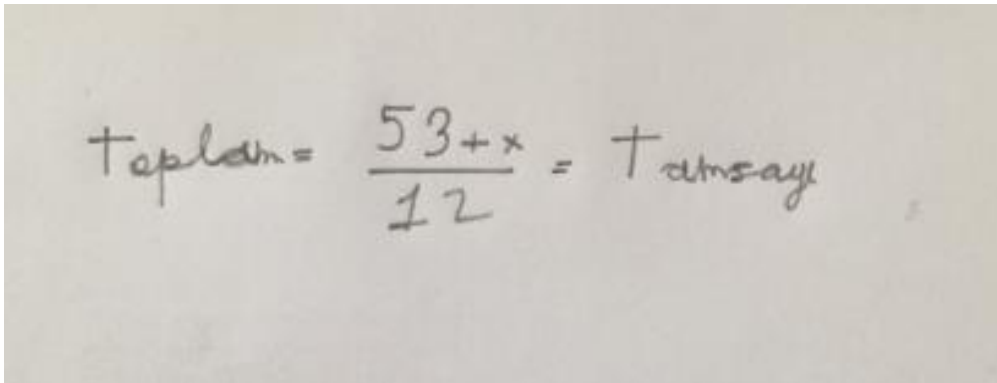 Toplam = 53+x / 12 = Tamsayı